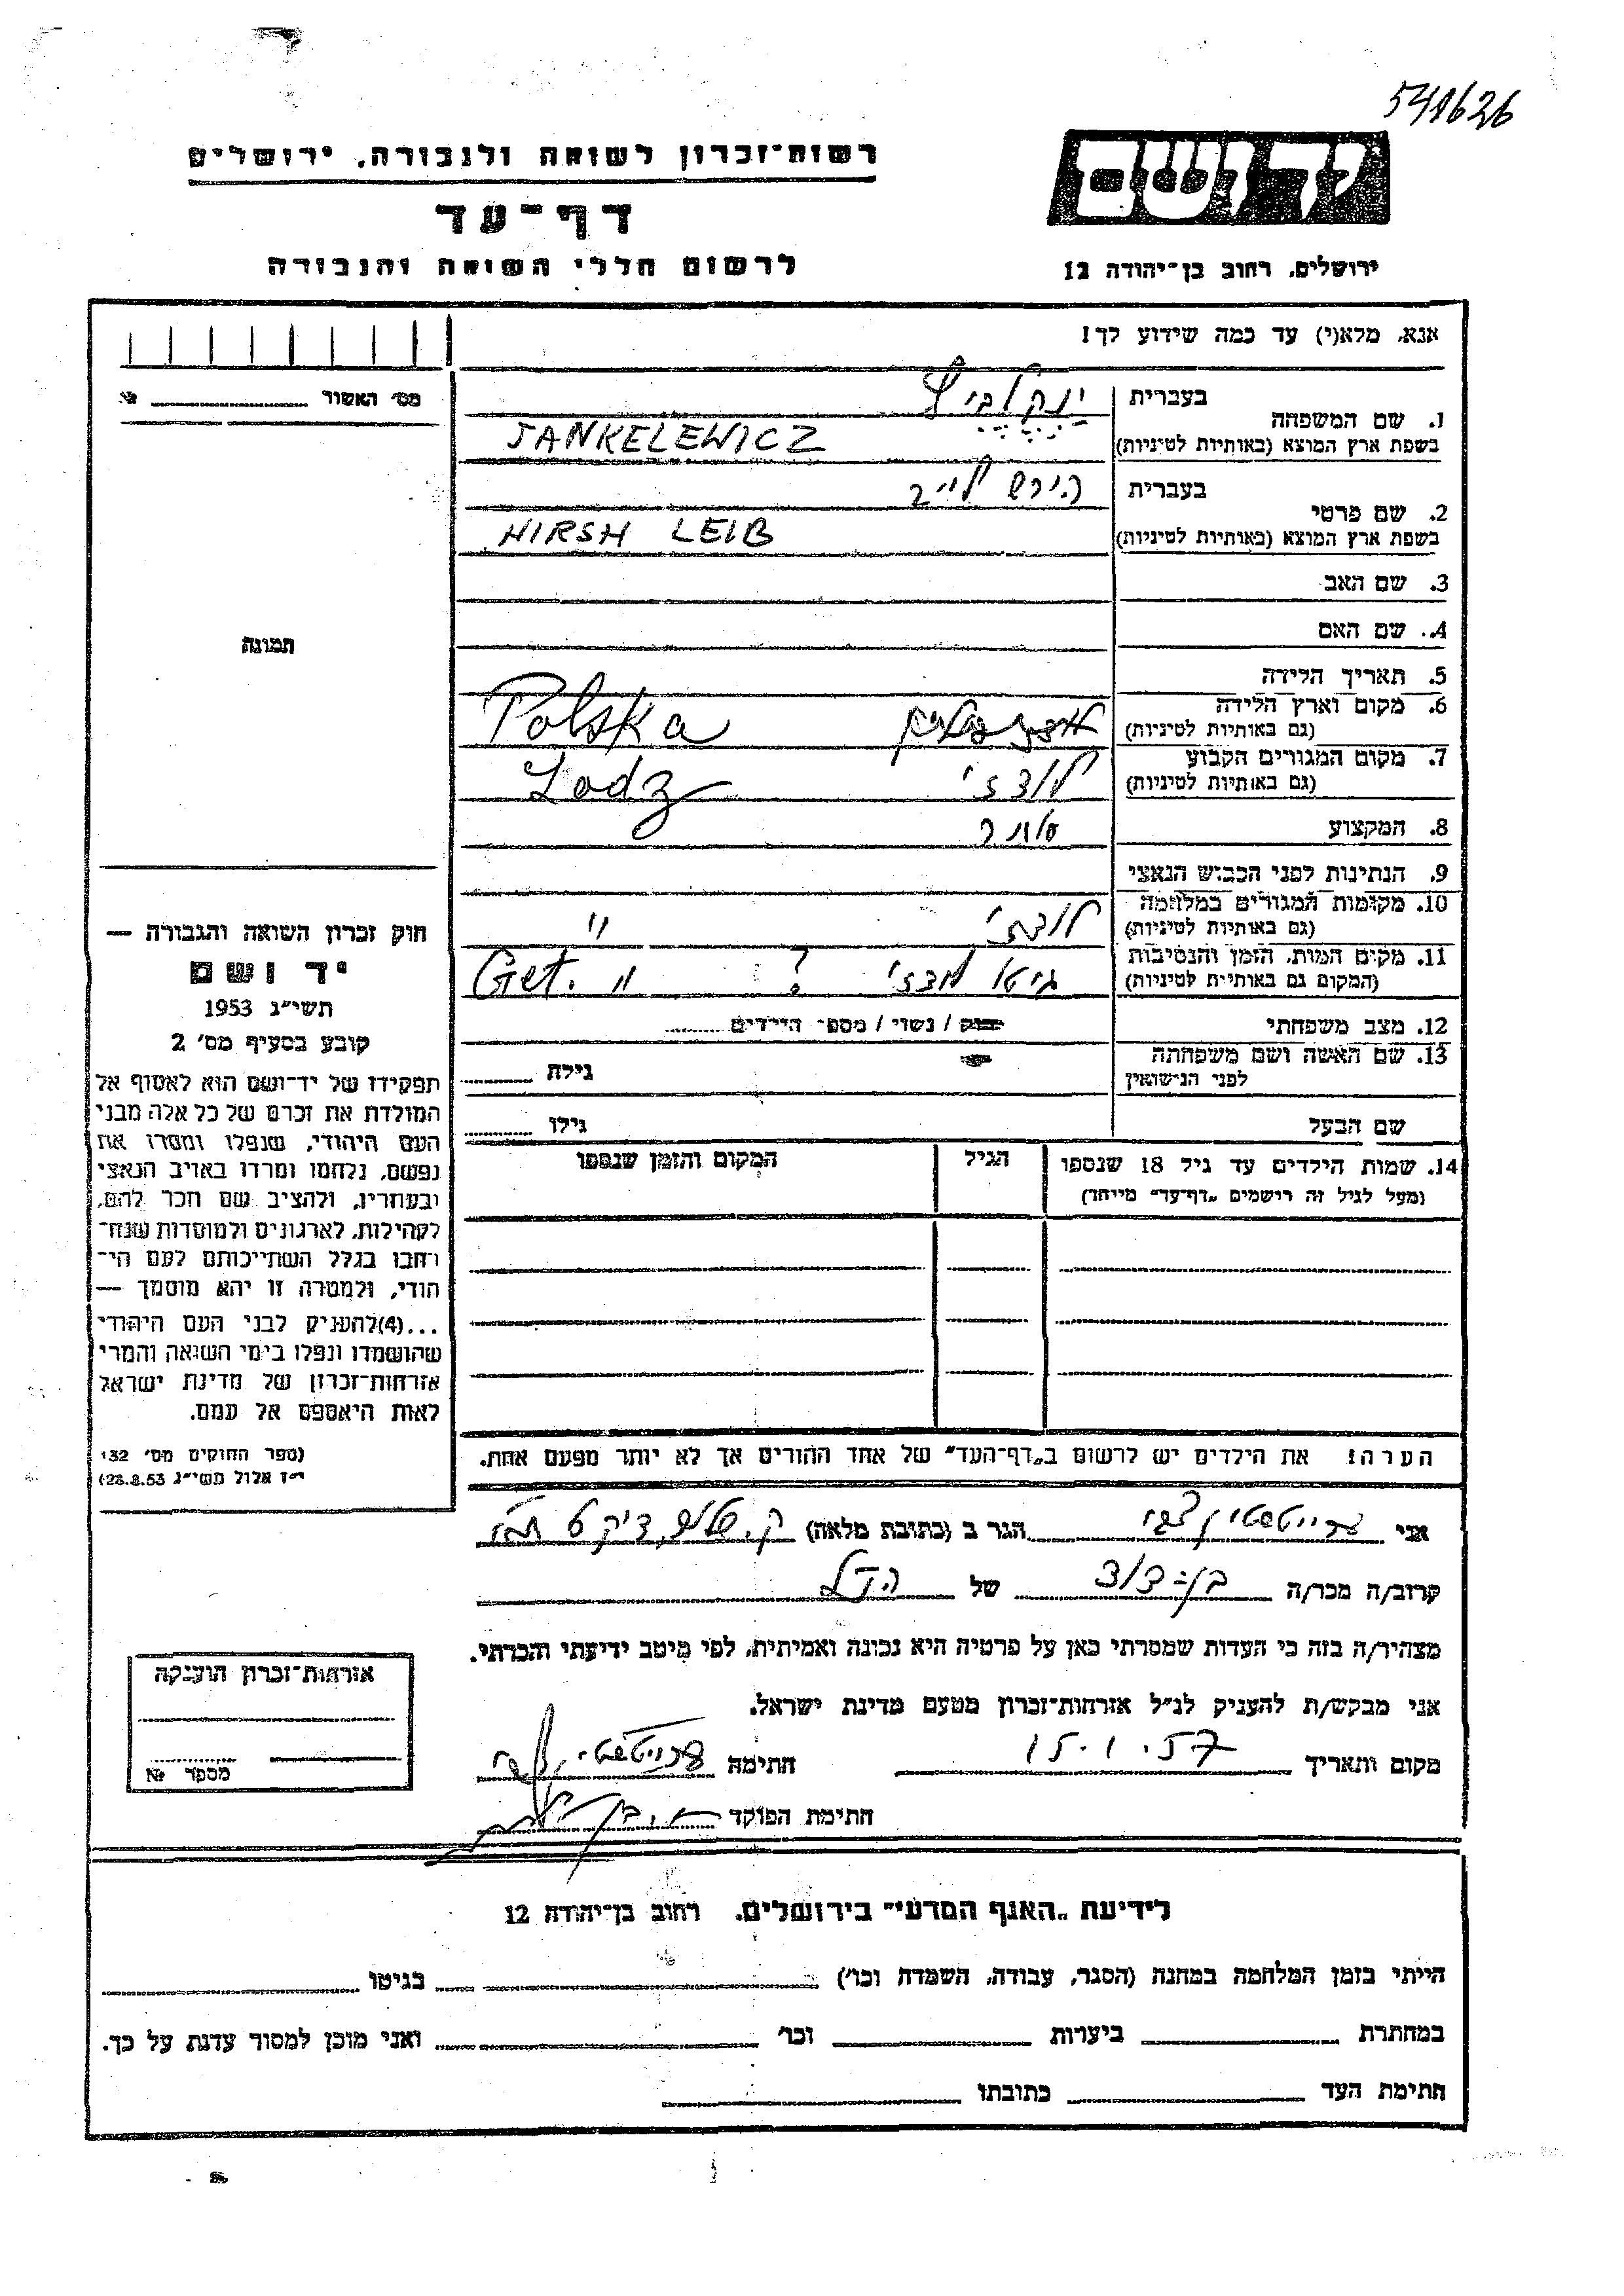 541626
רשות־זכרון לשואה ולגבורה, ירושלים
דף־עד
לרשום חללי השואה והגבורה
יד ושם
ירושלים, רחוב בן־יהודה 12
אנא, מלא(י) עד כמה שידוע לך!
מס׳ האשור №
1. שם המשפחה
בעברית ינקלביץ
בשפת ארץ המוצא (באותיות לטיניות) JANKELEWICZ
2. שם פרטי
בעברית הירש לייב
בשפת ארץ המוצא (באותיות לטיניות) HIRSH LEIB
3. שם האב
4. שם האם
תמונה
5. תאריך הלידה
6. מקום וארץ הלידה
(גם באותיות לטיניות) Polska
7. מקום המגורים הקבוע
(גם באותיות לטיניות) לודז׳ Lodz
8. המקצוע סוחר
9. הנתינות לפני הכבוש הנאצי
10. מקומות המגורים במלחמה
(גם באותיות לטיניות) לודז׳ "
11. מקום המות, הזמן והנסיבות
(המקום גם באותיות לטיניות) גיטו לודז׳ ? " Get.
12. מצב משפחתי רווק / נשוי / מספר הילדים
13. שם האשה ושם משפחתה
לפני הנישואין גילה
שם הבעל גילו
14. שמות הילדים עד גיל 18 שנספו
(מעל לגיל זה רישמים „דף־עד״ מייחד)
הגיל
המקום והזמן שנספו
הערה: את הילדים יש לרשום ב„דף־העד״ של אחד ההורים אך לא יותר מפעם אחת.
חוק זכרון השואה והגבורה —
יד ושם
תשי״ג 1953
קובע בסעיף מס׳ 2
תפקידו של יד־ושם הוא לאסוף אל
המולדת את זכרם של כל אלה מבני
העם היהודי, שנפלו ומסרו את
נפשם, נלחמו ומרדו באויב הנאצי
ובעוזריו, ולהציב שם וזכר להם,
לקהילות, לארגונים ולמוסדות שנח־
רבו בגלל השתייכותם לעם הי־
הודי, ולמטרה זו יהא מוסמך —
...(4)להעניק לבני העם היהודי
שהושמדו ונפלו בימי השואה והמרי
אזרחות־זכרון של מדינת ישראל
לאות היאספם אל עמם.
(ספר החוקים מס׳ 132
י״ז אלול תשי״ג 28.8.53)
אני הגר ב (כתובת מלאה)
קרוב/ה מכר/ה בן־דוד של הנ״ל
מצהיר/ה בזה כי העדות שמסרתי כאן על פרטיה היא נכונה ואמיתית, לפי מיטב ידיעתי והכרתי.
אני מבקש/ת להעניק לנ״ל אזרחות־זכרון מטעם מדינת ישראל.
מקום ותאריך 15.1.57 חתימה
חתימת הפוקד
אזרחות־זכרון הוענקה
מספר №
לידיעת „האגף המדעי״ בירושלים, רחוב בן־יהודה 12
הייתי בזמן המלחמה במחנה (הסגר, עבודה, השמדה וכו׳) בגיטו
במחתרת ביערות וכו׳ ואני מוכן למסור עדות על כך.
חתימת העד כתובתו